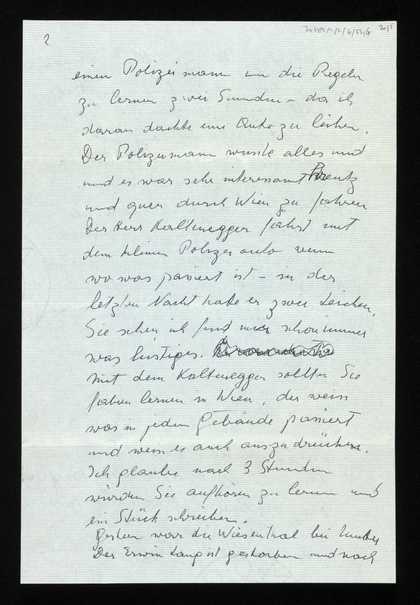 2
einen Polizeimann um die Regeln
zu lernen zwei Stunden – da ich
daran dachte eine Auto zu leihen.
Der Polizeimann wusste alles und
und es war sehr interessant Kreutz
und quer durch Wien zu fahren
Der Herr Kaltenegger fährt mit
dem kleinen Polizeiauto wenn
wo was passiert ist – in der
letzten Nacht hatte er zwei Leichen.
Sie sehen ich find mir schon immer
was lustiges.
Mit dem Kaltenegger sollten Sie
fahren lernen in Wien, der weiss
was in jedem Gebäude passiert
und weiss es auch auszudrücken.
Ich glaube nach 3 Stunden
würden Sie aufhören zu lernen und
ein Stück schreiben.
Gestern war die Wiesenthal bei
Der Erwin Lang ist gestorben und nach